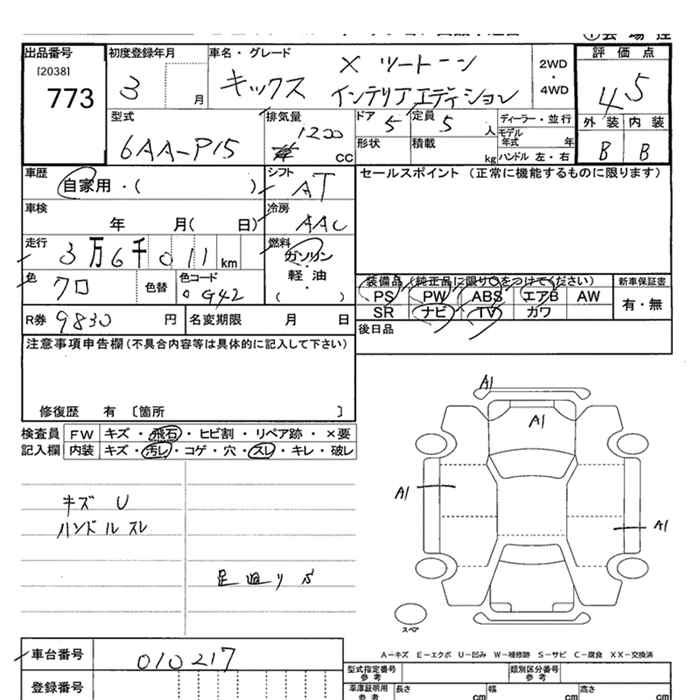 出品番号 初度登録年月 車名・グレード 評価点
[2038] X ツートーン 2WD
773 3 月 キックス インテリアエディション ・ 4WD 4 5
型式 排気量 ドア 定員 ディーラー・並行 外装 内装
6AA-P15 1200 cc 5 5 人 モデル年式 年 B B
形状 積載 kg ハンドル 左・右
車歴 自家用・( ) シフト AT セールスポイント (正常に機能するものに限ります)
車検 年 月( 日) 冷房 AAC
走行 3万6千011km 燃料 ガソリン
軽・油
・
( )
色 クロ 色替 色コード G42
装備品 (純正品に限り○をつけてください) 新車保証書
PS PW ABS エアB AW 有・無
SR ナビ TV ガワ
R券 9830 円 名変期限 月 日 後日品
注意事項申告欄(不具合内容等は具体的に記入して下さい)
修復歴 有 〔箇所 〕
検査員 FW キズ・飛石・ヒビ割・リペア跡・×要
記入欄 内装 キズ・汚レ・コゲ・穴・スレ・キレ・破レ
A1
A1
A1
A1
キズ U
ハンドルスレ
スペア
A-キズ E-エクボ U-凹み W-補修跡 S-サビ C-腐食 XX-交換済
車台番号 010217
登録番号
型式指定番号 参考 類別区分番号 参考
車庫証明用 参考 長さ cm 幅 cm 高さ cm